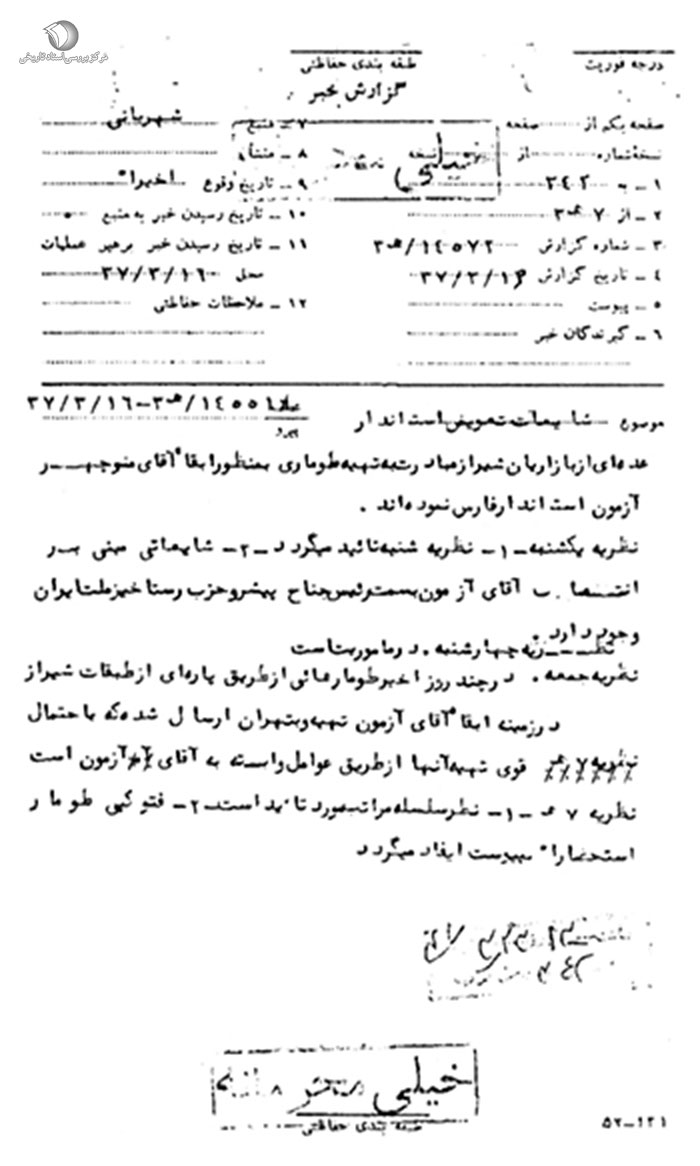 مرکز بررسی اسناد تاریخی
درجه فوریت
طبقه بندی حفاظتی
گزارش خبر
صفحه یکم از صفحه
نسخه شماره از نسخه
۱ ـ به ۳۴۲
۲ ـ از ۷ هـ ۳
۳ ـ شماره گزارش ۱٤۵۷۲/هـ۳
۴ ـ تاریخ گزارش ۳۷/۳/۱۶
۵ ـ پیوست
۶ ـ گیرندگان خبر
۷ ـ منبع شهربانی
۸ ـ منشأ
۹ ـ تاریخ وقوع اخیراً
۱۰ ـ تاریخ رسیدن خبر به منبع
۱۱ ـ تاریخ رسیدن خبر برهبر عملیات
محل ۳۷/۳/۱۶
۱۲ ـ ملاحظات حفاظتی
خیلی محرمانه
موضوع شایعات تعویض استاندار
پیرو ۱٤۵۵۱/هـ۳-۳۷/۳/۱۶
عده‌ای از بازاریان شیراز مبادرت به تهیه طوماری بمنظور ابقاء آقای منوچهـر
آزمون استاندار فارس نموده‌اند .
نظریه یکشنبه ـ۱ـ نظریه شنبه تائید میگردد ـ۲ـ شایعاتی مبنی بـر
انتصاب آقای آزمون بسمت رئیس جناح پیشرو حزب رستاخیز ملت ایران
وجود دارد .
نظـریه چهارشنبه . در ماموریت است
نظریه جمعه . در چند روز اخیر طومارهائی از طریق پاره‌ای از طبقات شیراز
در زمینه ابقاء آقای آزمون تهیه و بتهران ارسال شده که باحتمال
قوی تهیه آنها از طریق عوامل وابسته به آقای آزمون است
نظریه ۷ هـ ـ۱ـ نظر سلسله مراتب مورد تائید است ـ۲ـ فتوکپی طومار
استحضاراً بپیوست ایفاد میگردد
خیلی محرمانه
طبقه بندی حفاظتی
۵۲-۱۲۱